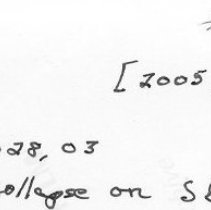 [2005
028, 03
collapse on S